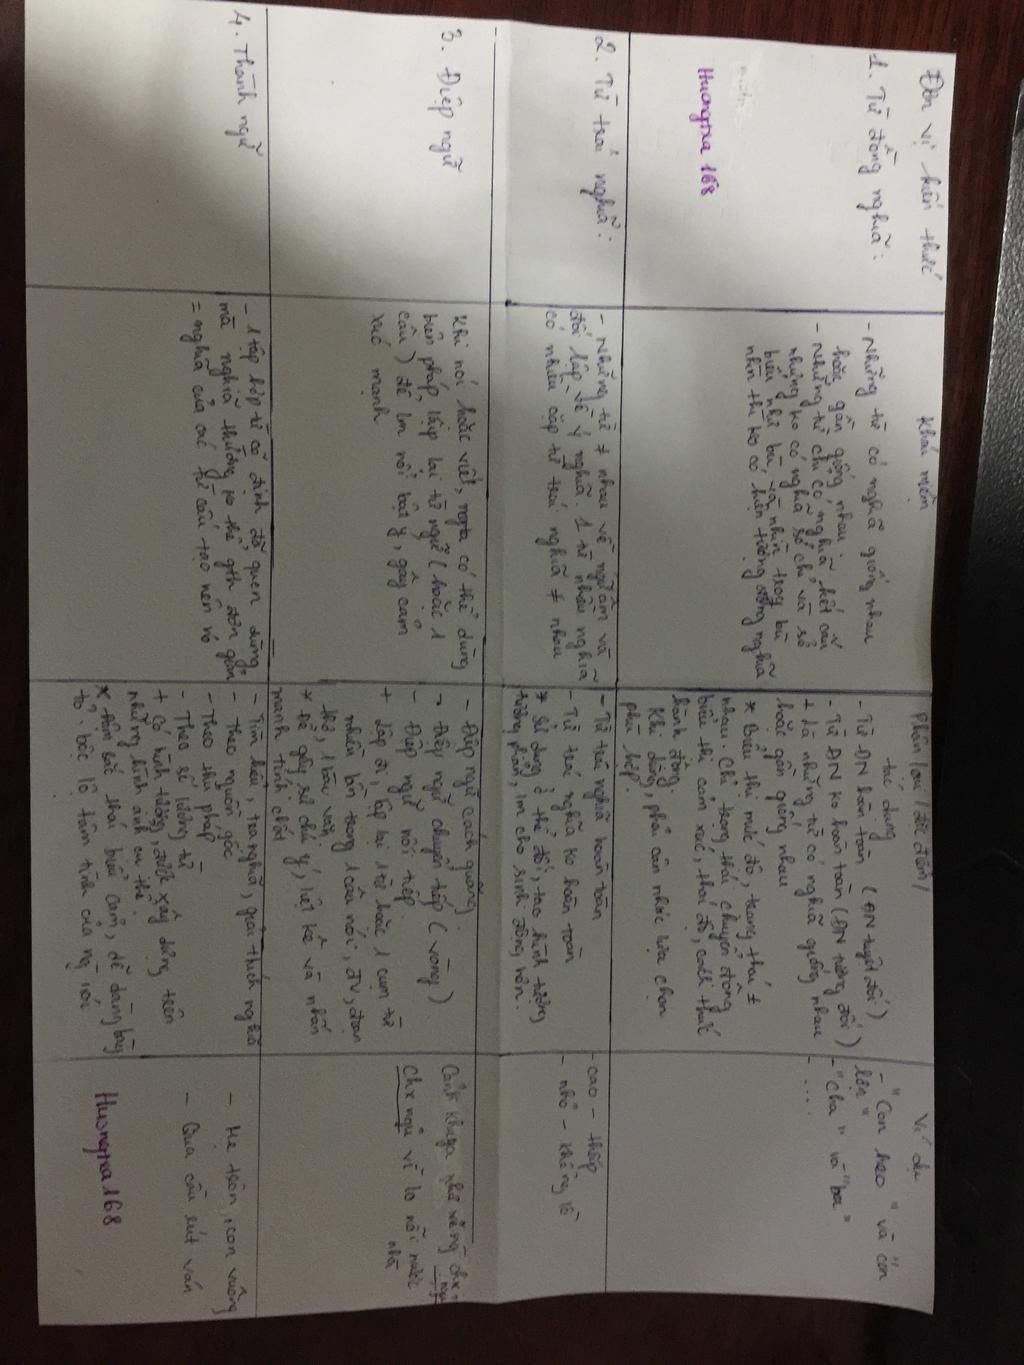 Đơn vị kiến thức
Khái niệm
Phân loại / đặc điểm /
tác dụng
Ví dụ
1. Từ đồng nghĩa :
Huongtxa 168
- Những từ có nghĩa giống nhau
hoặc gần giống nhau.
- Những từ chỉ có nghĩa kết cấu
nhưng ko có nghĩa sở chỉ và sở
biểu như bù, và nhìn trog bù
nhìn thì ko có hiện tượng đồng nghĩa
- Từ ĐN hoàn toàn (ĐN tuyệt đối)
- Từ ĐN ko hoàn toàn (ĐN tương đối)
+ Là những từ có nghĩa giống nhau
hoặc gần giống nhau
* Biểu thị mức độ, trạng thái ≠
nhau. Chỉ trạng thái chuyển động
biểu thị cảm xúc, thái độ, cách thức
hành động.
Khi dùng, phải cân nhắc lựa chọn
phù hợp.
- "Con heo" và "con
lợn"
- "Cha" và "ba"
- ....
2. Từ trái nghĩa :
- Những từ ≠ nhau về ngữ âm và
đối lập về ý nghĩa. 1 từ nhiều nghĩa
có nhiều cặp từ trái nghĩa ≠ nhau
- Từ trái nghĩa hoàn toàn
- Từ trái nghĩa ko hoàn toàn
* Sử dụng ở thể đối, tạo hình tượng
tương phản, lm cho sinh động hơn.
- cao - thấp
- nhỏ - khổng lồ
3. Điệp ngữ
Khi nói hoặc viết, ngta có thể dùng
biện pháp lặp lại từ ngữ (hoặc 1
câu) để lm nổi bật ý, gây cảm
xúc mạnh
- Điệp ngữ cách quãng
- Điệp ngữ chuyển tiếp (vòng)
- Điệp ngữ nối tiếp.
+ Lặp đi, lặp lại 1 từ hoặc 1 cụm từ
nhiều lần trong 1 câu nói, đv, đoạn
thơ, 1 bài văn
* Để gây sự chú ý, liệt kê và nhấn
mạnh tính chất
Cảnh khuya như vẽ ng chx
ngủ
Chx ngủ vì lo nỗi nước
nhà
4. Thành ngữ
- 1 tập hợp từ cố định đã quen dùng
mà nghĩa thường ko thể gth đơn giản
= nghĩa của các từ cấu tạo nên nó
- Tìm hiểu, tra nghĩa, giải thích nghĩa
- Theo nguồn gốc
- Theo thủ pháp
- Theo số lượng từ
+ Có hình tượng, được xây dựng trên
những hình ảnh cụ thể.
* Mang sắc thái biểu cảm, dễ dàng bày
tỏ, bộc lộ tâm tình của ng nói
- Mẹ tròn, con vuông
- Qua cầu rút ván
Huongtxa168